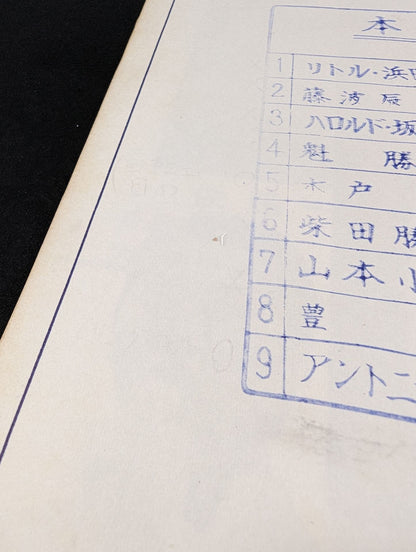 本
1 リトル・浜田
2 藤波辰
3 ハロルド・坂
4 魁 勝
5 木戸
6 柴田勝
7 山本小
8 豊
9 アントニ